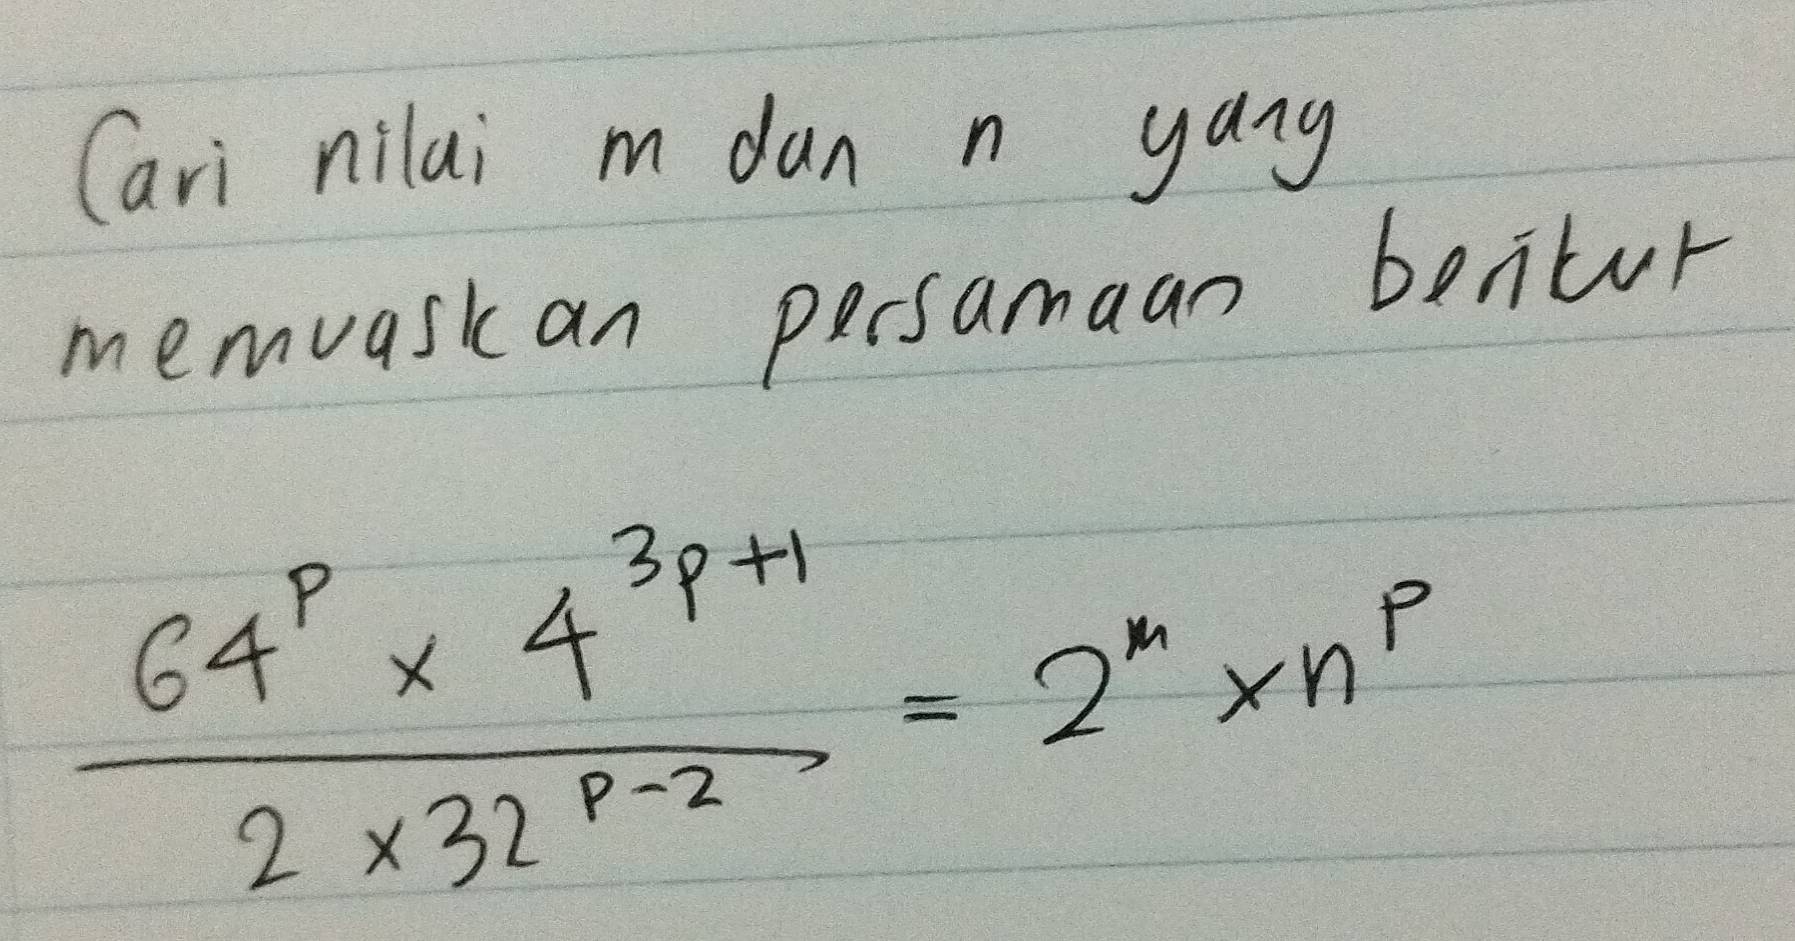 Cari nilai m dan n yang
memuaskan persamaan berikut
64^p × 4^{3p+1} / 2 × 32^{p-2} = 2^m × n^p